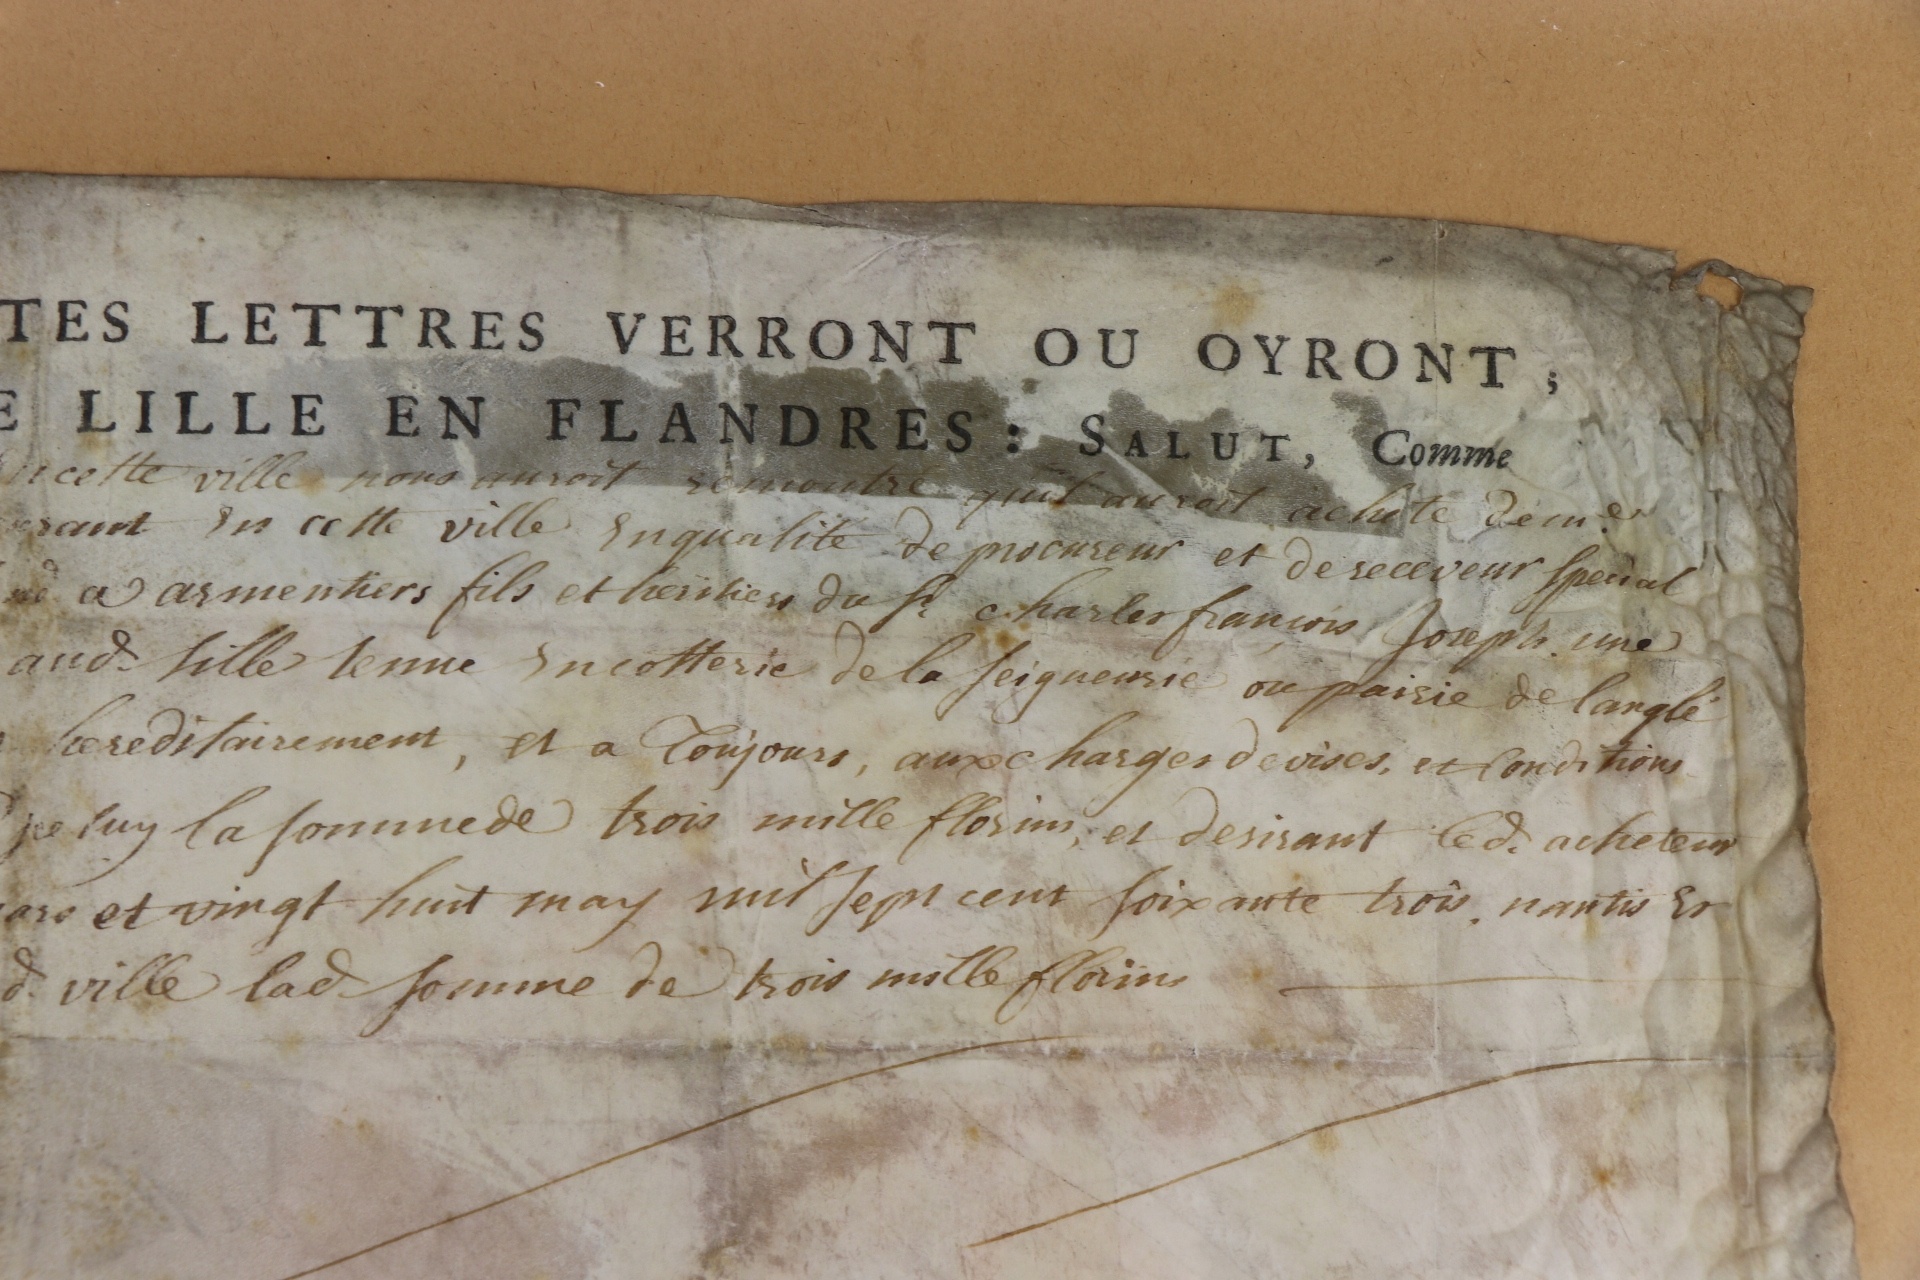 TES LETTRES VERRONT OU OYRONT;
E LILLE EN FLANDRES: SALUT, Comme
en cette ville nous auroit remontré qu'il auroit acheté de me
En cette ville En qualité de procureur et de receveur special
a armentiers fils et heritiers du Sr. Charles françois Joseph. une
aud. Lille tenue En cotterie de la seigneurie ou pairie de langlé
hereditairement, et a Toujours, aux charges devises, et Conditions
luy la somme de trois mille florins, et desirant led. acheteur
et vingt huit may mil sept cent soixante trois, nantis Es
d. ville lad. somme de trois mille florins